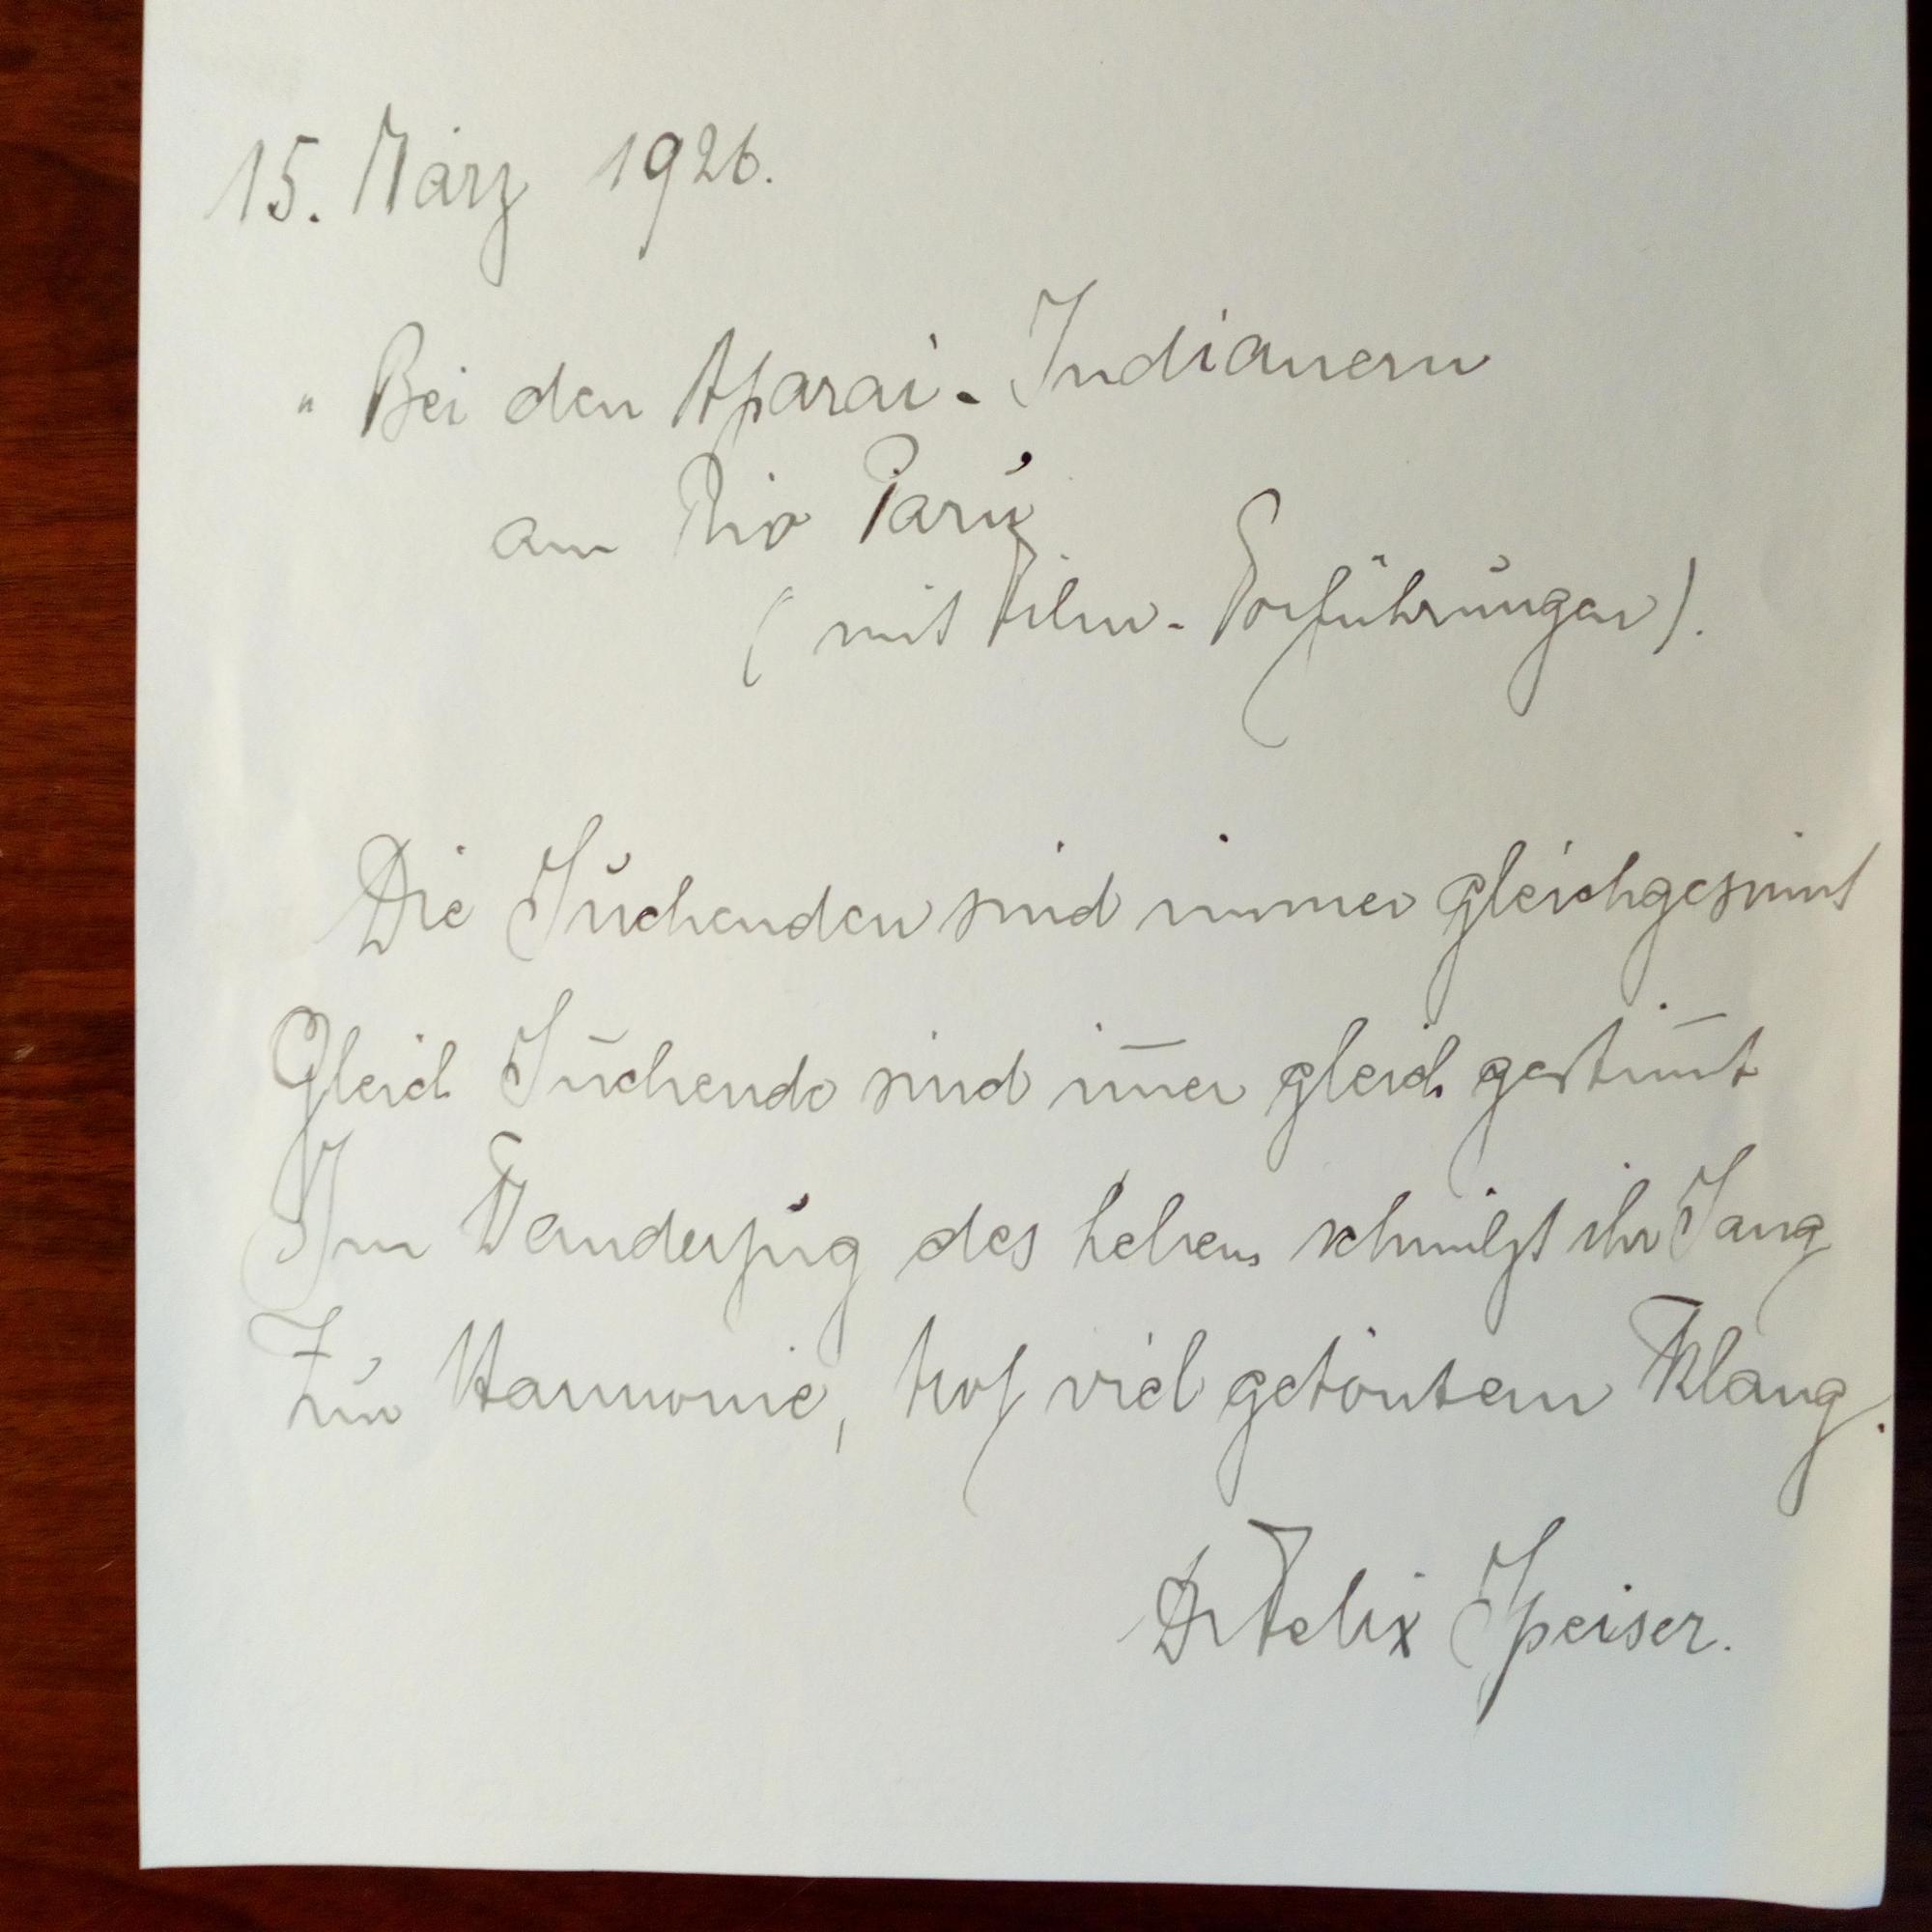 15. März 1926.
„ Bei den Aparai - Indianern
am Rio Parú
( mit Film - Vorführungen ).
Die Suchenden sind immer gleichgesinnt
Gleich Suchende sind im̅er gleich gestim̅t
Im Wanderzug des Lebens schmilzt ihr Sang
Zur Harmonie, trotz viel getöntem Klang.
Dr Felix Speiser.